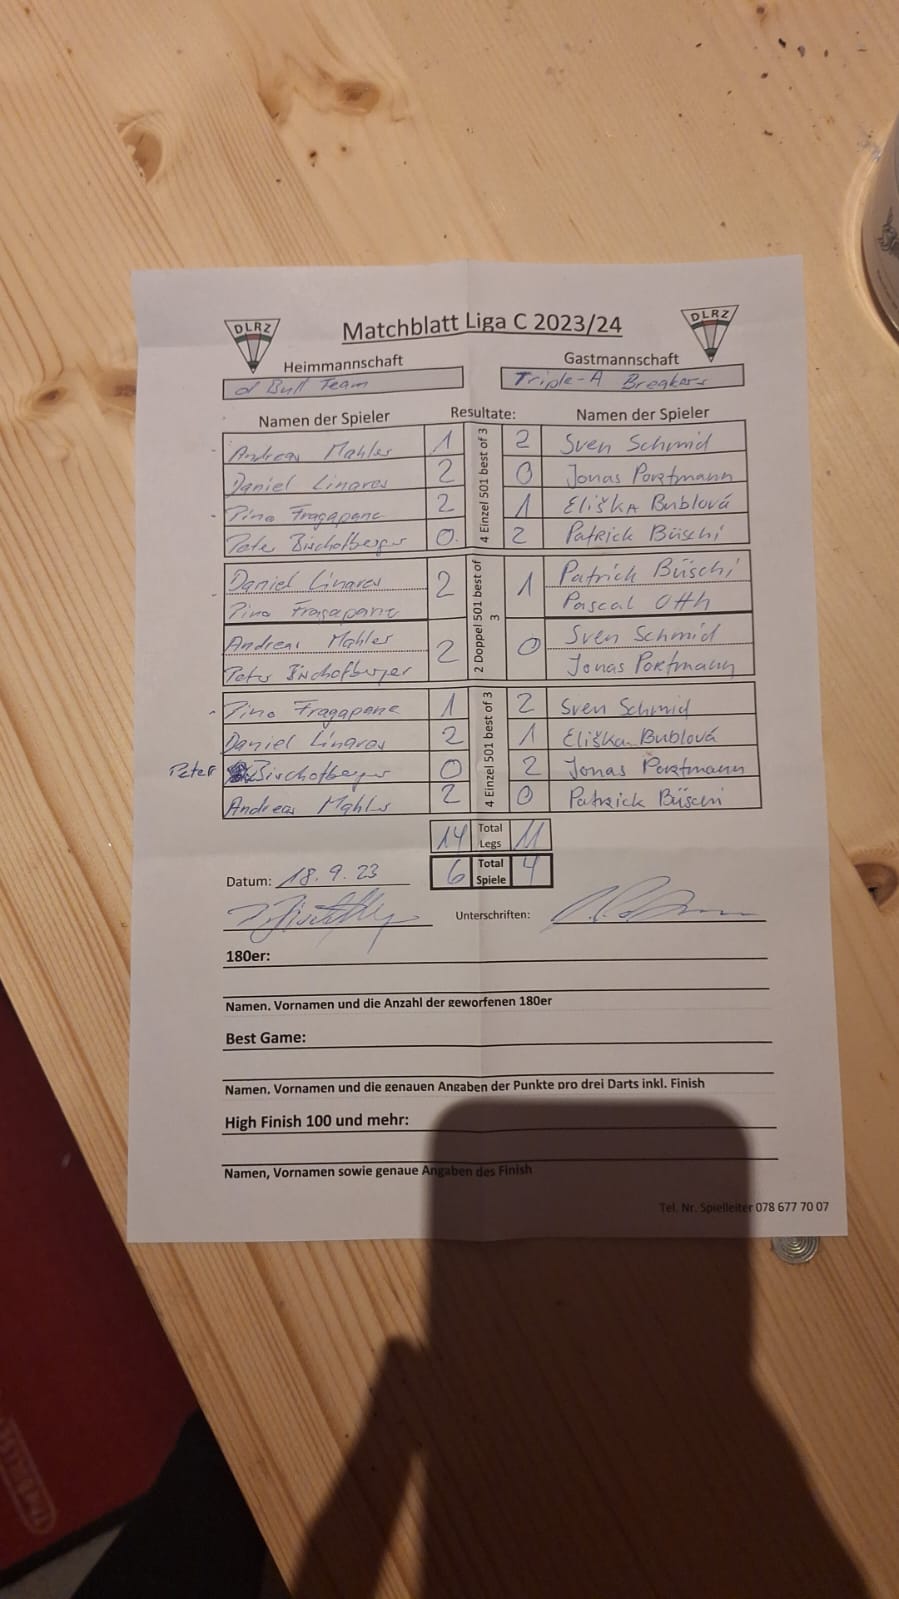 DLRZ
Matchblatt Liga C 2023/24
DLRZ
Heimmannschaft Gastmannschaft
d Bull Team Triple-A Breakers
Namen der Spieler Resultate: Namen der Spieler
4 Einzel 501 best of 3
Andreas Mahler 1 2 Sven Schmid
Daniel Linares 2 0 Jonas Portmann
Pino Fragapane 2 1 Eliška Bublová
Peter Bischofberger 0 2 Patrick Büschi
2 Doppel 501 best of 3
Daniel Linares 2 1 Patrick Büschi
Pino Fragapane Pascal Otth
Andreas Mahler 2 0 Sven Schmid
Peter Bischofberger Jonas Portmann
4 Einzel 501 best of 3
Pino Fragapane 1 2 Sven Schmid
Daniel Linares 2 1 Eliška Bublová
Peter Bischofberger 0 2 Jonas Portmann
Andreas Mahler 2 0 Patrick Büschi
14 Total Legs 11
6 Total Spiele 4
Datum: 18.9.23
Unterschriften:
180er:
Namen. Vornamen und die Anzahl der geworfenen 180er
Best Game:
Namen. Vornamen und die genauen Angaben der Punkte pro drei Darts inkl. Finish
High Finish 100 und mehr:
Namen, Vornamen sowie genaue Angaben des Finish
Tel. Nr. Spielleiter 078 677 70 07